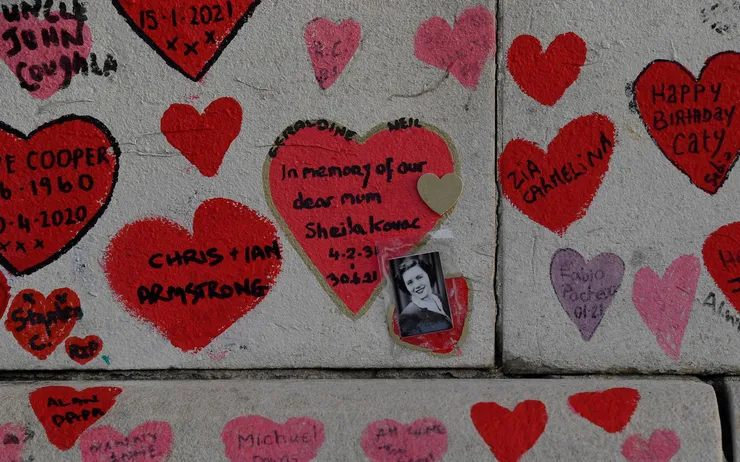 UNCLE
JOHN
COUGHLA
15-1-2021
x x x
R.C.
HAPPY
BIRTHDAY
CATY
GERALDINE NEIL
In memory of our
dear mum
Sheila Kovac
4-2-31
30.6.21
ZIA
CARMELINA
E COOPER
6-1960
0-4-2020
x x x
CHRIS + IAN
ARMSTRONG
Fabio
Pacheco
01-21
Stephen
C.
RIP
ALAN
Michael